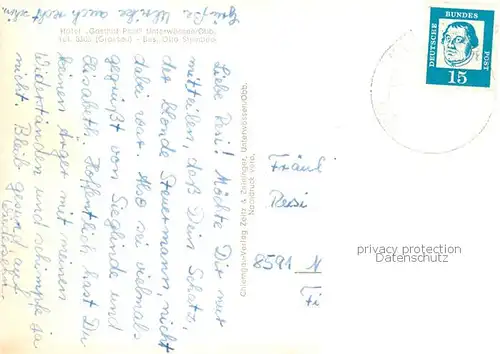 Grüße Ulrike auch recht schön.
Hotel „Gasthof Post“ Unterwössen/Obb.
Liebe Resi! Möchte Dir nur
mitteilen, daß Dein Schatz,
der blonde Steuermann, nicht
dabei war. Also sei vielmals
gegrüßt von Sieglinde und
Elisabeth. Hoffentlich hast Du
keinen Ärger mit meinen
Widerständen und schimpfe ja
nicht. Bleib gesund auf
Wiedersehn.
Chiemgau-Verlag Zeitz & Zeininger, Unterwössen/Obb.
Nachdruck verb.
DEUTSCHE BUNDES POST
15
Fräul
Resi
8591 N
Fi
privacy protection
Datenschutz